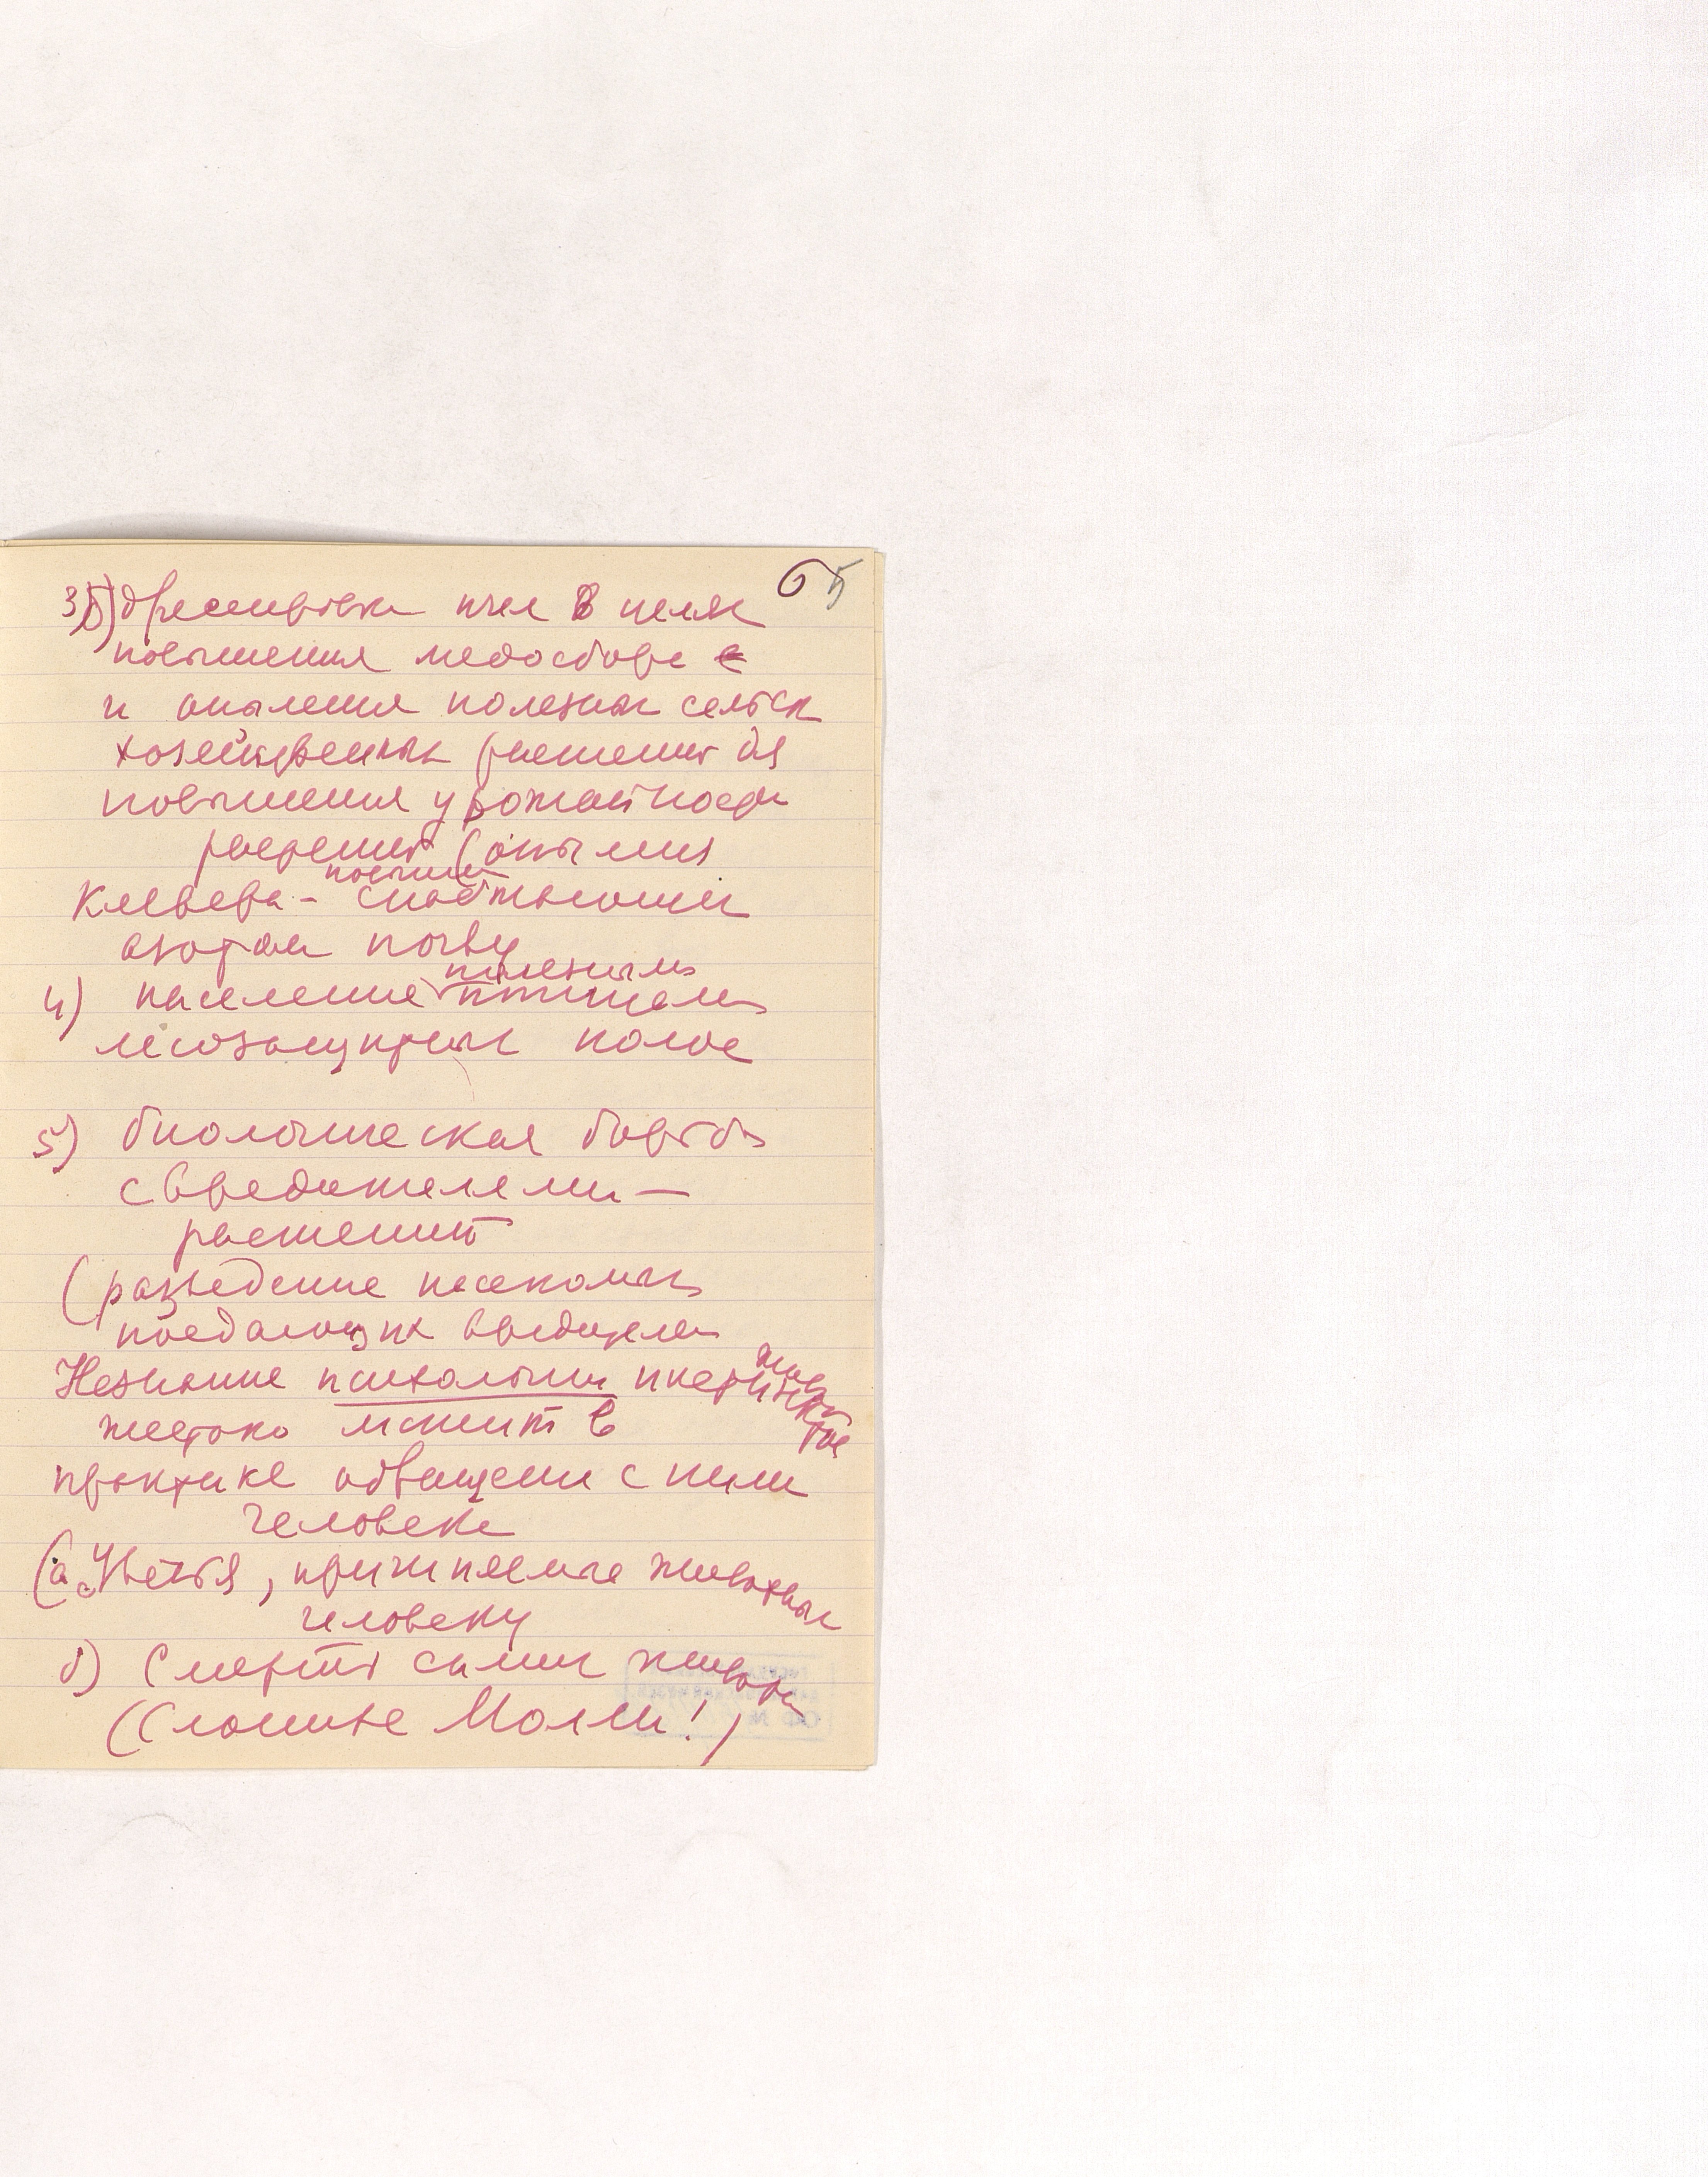 6 5
3)б) дрессировка пчел в целях
повышения медосбора
и опыления полезных сельск
хозяйственных растений для
повышения урожайности
растений (опыления
клевера – снабжающих
азотом почву
полезными
4) население птицами
лесозащитных полос
5) биологическая борьба
с вредителями –
растений
(разведение насекомых
поедающих вредителей
Незнание психологии
жестоко мстит в
практике обращения с ними
человека
(а Увечья, причиняемые животными
человеку
б) Смерть самих животн
(Слониха Молли!)